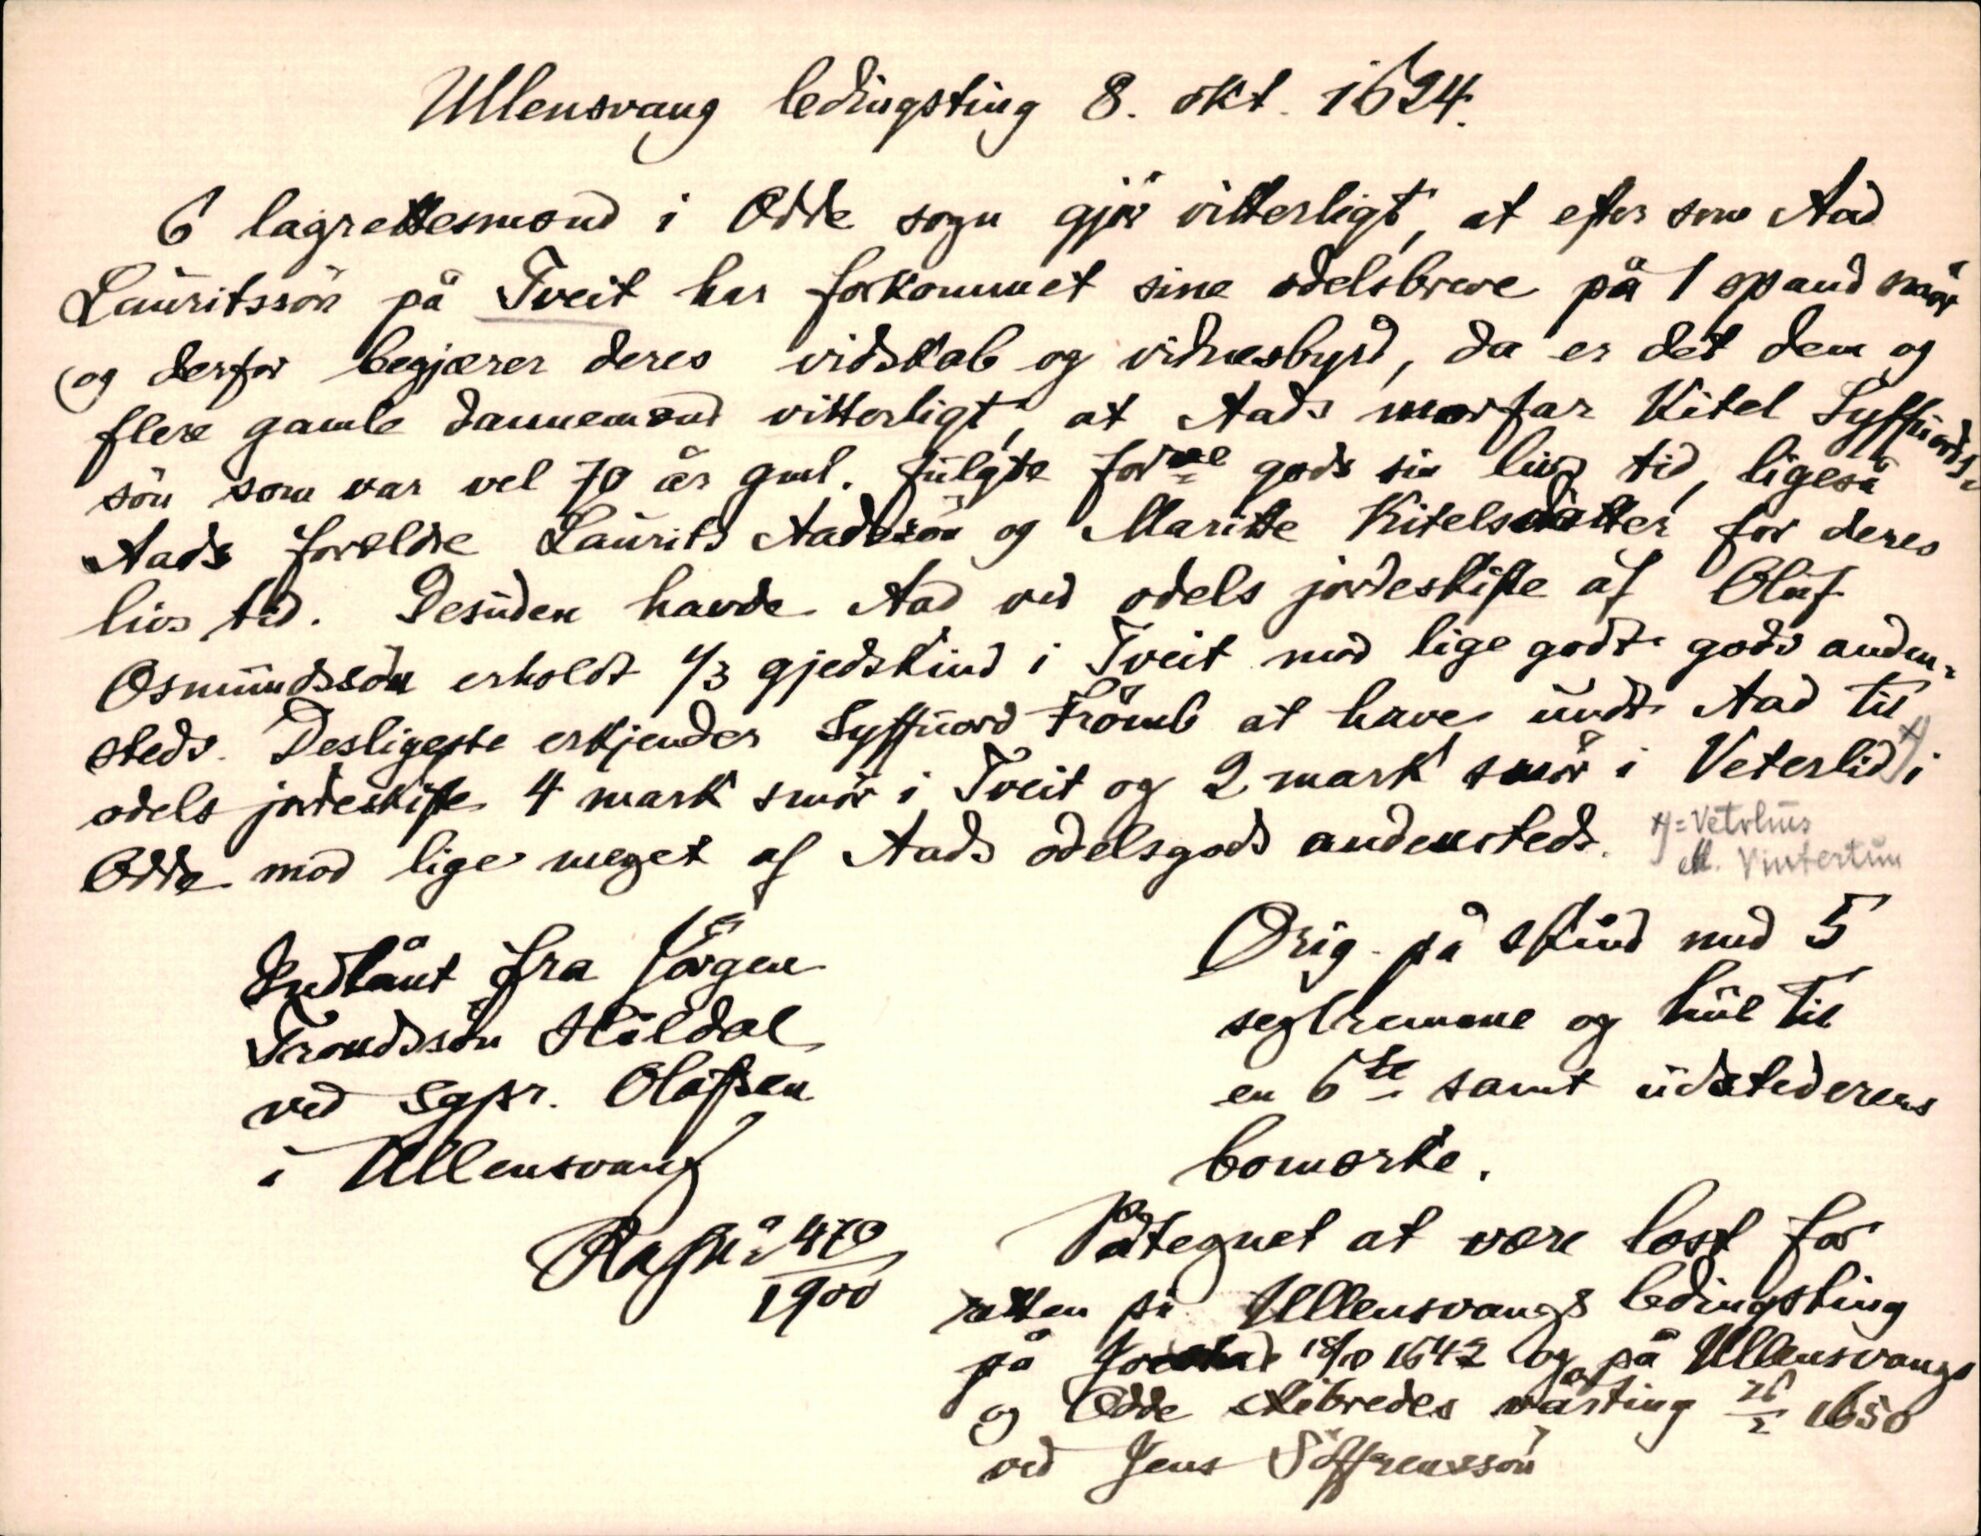 Ullensvang ledingsting 8. okt. 1624.
6 lagrettesmænd i Odde sogn gjør vitterligt, at efter som Aad
Lauritssön på Tveit har forkommet sine odelsbreve på 1 spand smør
og derfor begjærer deres vidskab og vidnesbyrd, da er det dem og
flere gamle dannemænd vitterligt, at Aads morfar Kitel Syffuords-
sön som var vel 70 år gml. fulgte forne gods sin livs tid, ligeså
Aads forældre Laurits Aadssön og Maritte Kitelsdatter for deres
livs tid. Desuden havde Aad ved odels jordeskifte af Oluf
Osmundssön erholdt 1/3 gjedskind i Tveit mod lige godt gods anden-
steds. Desligeste erkjender Syffuord Frömb at have undt Aad til
odels jordeskifte 4 mark smör i Tveit og 2 mark smör i Veterlid x) i
Odde mod lige meget af Aads odelsgods andensteds.
x) = Vetrhus
ell. Vintertun
Indlånt fra Jörgen
Trondssön Hildal
ved sgpr. Olafsen
i Ullensvang
Ra fkr 470
1900
Orig. på skind med 5
seglremme og hul til
en 6te samt udstederens
bomærke.
Påtegnet at være læst for
retten på Ullensvangs ledingsting
på 18/10 1642 og på Ullensvangs
og Odde skibredes vårting 26/2 1650
ved Jens Söffrenssön